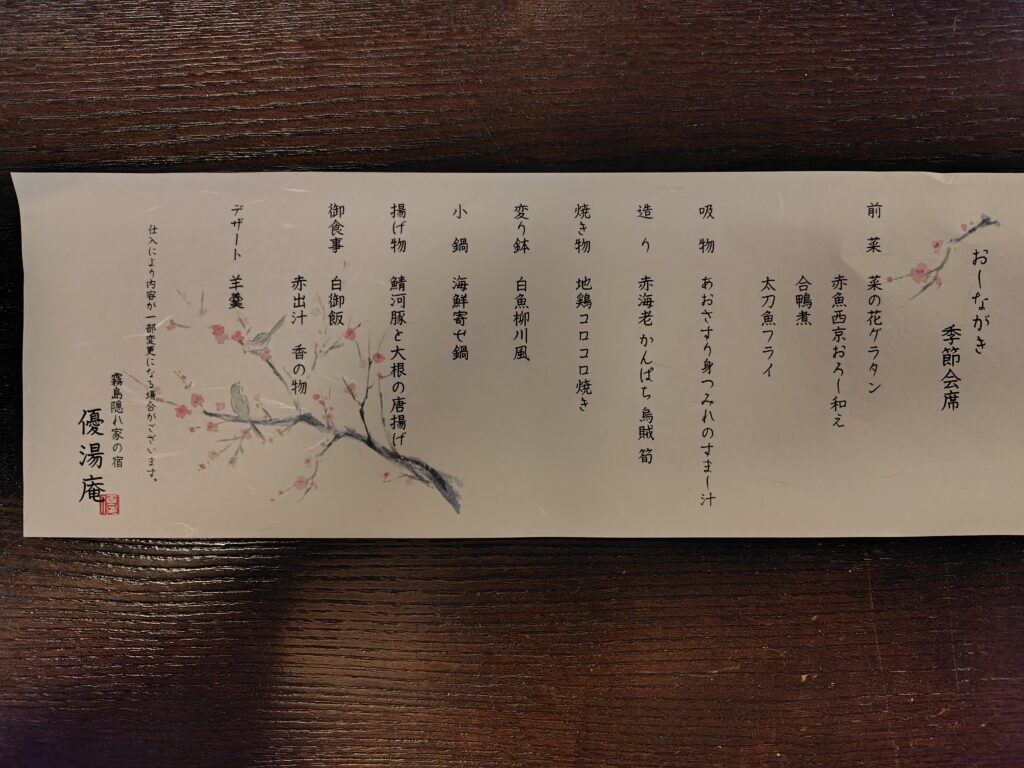 おしながき
季節会席
前 菜 菜の花グラタン
赤魚西京おろし和え
合鴨煮
太刀魚フライ
吸 物 あおさすり身つみれのすまし汁
造 り 赤海老 かんぱち 烏賊 筍
焼き物 地鶏コロコロ焼き
変り鉢 白魚柳川風
小 鍋 海鮮寄せ鍋
揚げ物 鯖河豚と大根の唐揚げ
御食事 白御飯
赤出汁 香の物
デザート 羊羹
仕入により内容が一部変更になる場合がございます。
霧島隠れ家の宿
優湯庵